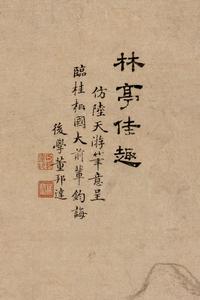 林亭佳趣
仿陸天游筆意呈
臨桂相國大前輩鈞誨
後學董邦達